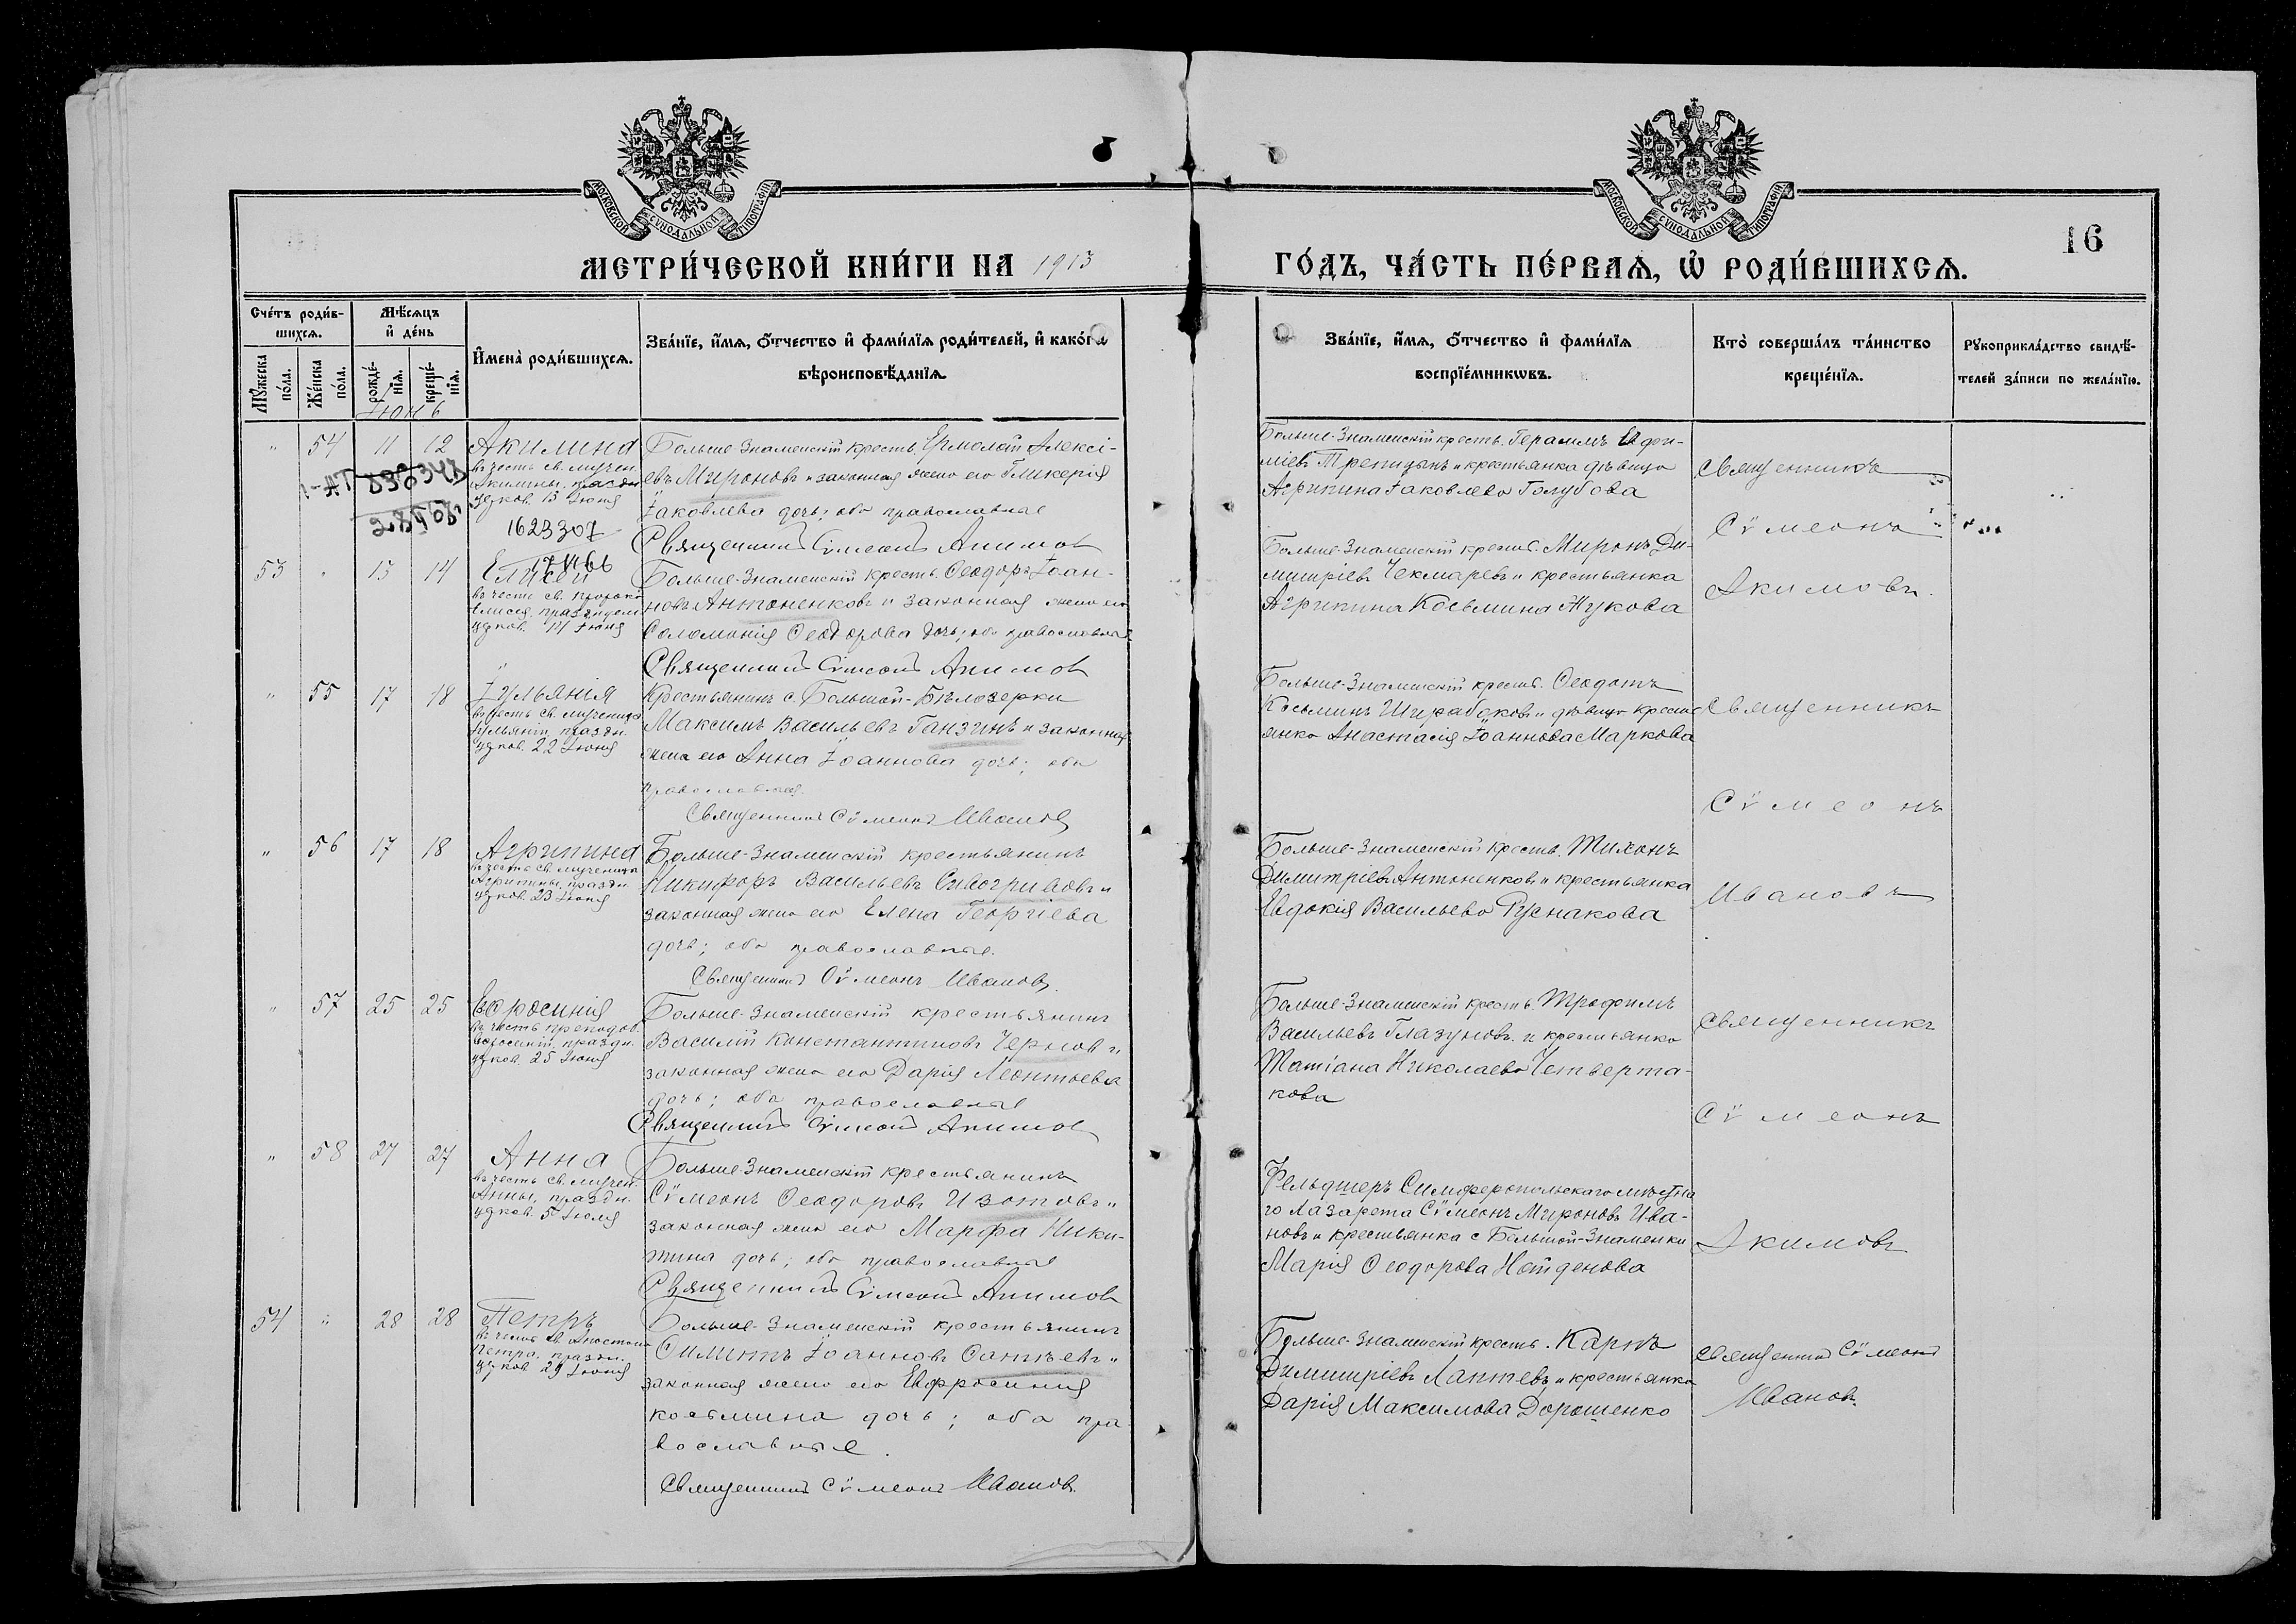 МОСКОВСКОЙ СУНОДАЛЬНОЙ ТИПОГРАФІИ
МОСКОВСКОЙ СУНОДАЛЬНОЙ ТИПОГРАФІИ
16
МЕТРИ́ЧЕСКОЙ КНИ́ГИ НА 1913
ГО́ДЪ, ЧА́СТЬ ПЕ́РВАЯ, Ѡ РОДИ́ВШИХСЯ.
Сче́тъ роди́в-
шихся.
Мѣ́сяцъ
и де́нь
Му́жеска по́ла.
Же́нска по́ла.
рожде́-
нія.
креще́-
нія.
Имена̀ роди́вшихся.
Зва́нїе, и́мя, о́тчество и фами́лїя роди́телей, и како́гѡ
вѣроисповѣ́данїя.
Зва́нїе, и́мя, о́тчество и фами́лїя
воспрїе́мникѡвъ.
Кто̀ соверша́лъ та́инство
креще́нїя.
Рукоприкла́дство свидѣ́-
телей за́писи по жела́нїю.
Іюнь
" 54 11 12
Акилина
въ честь св. мучен.
Акилины, праздн.
церков. 13 Іюня
1623307
Больше-Знаменскій крест. Ермолай Алексі-
евъ Мироновъ и законная жена его Гликерія
Іаковлева дочь; оба православные
Священникъ Сѵмеонъ Акимовъ
Больше-Знаменскій крест. Герасимъ Евдои-
міевъ Трепицынъ и крестьянка дѣвица
Агрипина Іаковлева Голубова
Священникъ
Сѵмеонъ
Акимовъ.
53 " 13 14
Елисей
17466
въ честь св. пророка
Елисея, празднуем.
церков. 14 Іюня
Больше-Знаменскій крест. Ѳеодоръ Іоан-
новъ Антоненковъ и законная жена его
Соломонія Ѳеодорова дочь; оба православные
Священникъ Сѵмеонъ Акимовъ
Больше-Знаменскій крест. Миронъ Ди-
митріевъ Чекмаревъ и крестьянка
Агрипина Косьмина Жукова
" 55 17 18
Іульянія
въ честь св. мученицы
Іульяніи, праздн.
церков. 22 Іюня
Крестьянинъ с. Большой-Бѣлозерки
Максимъ Васильевъ Ганзинъ и законная
жена его Анна Іоаннова дочь; оба
православные.
Священникъ Сѵмеонъ Ивановъ
Больше-Знаменскій крест. Ѳеодотъ
Косьминъ Ширабоковъ и дѣвица кресть-
янка Анастасія Іоаннова Маркова
Священникъ
Сѵмеонъ
Ивановъ
" 56 17 18
Агрипина
въ честь св. мученицы
Агрипины, праздн.
церков. 23 Іюня
Больше-Знаменскій крестьянинъ
Никифоръ Васильевъ Сивогривовъ и
законная жена его Елена Георгіева
дочь; оба православные.
Священникъ Сѵмеонъ Ивановъ.
Больше-Знаменскій крест. Тихонъ
Димитріевъ Антоненковъ и крестьянка
Евдокія Васильева Руснакова
" 57 25 25
Евфросинія
въ честь преподоб.
Евфросиніи, праздн.
церков. 25 Іюня
Больше-Знаменскій крестьянинъ
Василій Константиновъ Черновъ и
законная жена его Дарія Леонтьева
дочь; оба православные
Священникъ Сѵмеонъ Акимовъ
Больше-Знаменскій крест. Трофимъ
Васильевъ Глазуновъ и крестьянка
Татіана Николаева Четверта-
кова
Священникъ
Сѵмеонъ
Акимовъ
" 58 27 27
Анна
въ честь св. мучен.
Анны, праздн.
церков. 5 Іюля
Больше-Знаменскій крестьянинъ
Сѵмеонъ Ѳеодоровъ Изотовъ и
законная жена его Марфа Ники-
тина дочь; оба православные
Священникъ Сѵмеонъ Акимовъ
Фельдшеръ Симферопольскаго мѣстна-
го лазарета Сѵмеонъ Мироновъ Ива-
новъ и крестьянка с Большой-Знаменки
Марія Ѳеодорова Найденова
54 " 28 28
Петръ
въ честь св. Апостола
Петра, праздн.
церков. 29 Іюня
Больше-Знаменскій крестьянинъ
Іоанновъ
законная жена его Евфросинія
Косьмина дочь; оба пра
вославные.
Священникъ Сѵмеонъ Ивановъ.
Больше-Знаменскій крест. Карпъ
Димитріевъ Лаптевъ и крестьянка
Дарія Максимова Дорошенко
Священникъ Сѵмеонъ
Ивановъ.